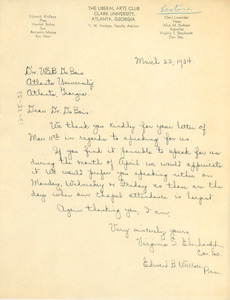 THE LIBERAL ARTS CLUB
CLARK UNIVERSITY
ATLANTA, GEORGIA
Edward Wallace
Pres.
Sec.
Benjamin
Clara Lavender
Treas.
Alice M.
Reporter
Virginia T. Eberhardt
Cor. Sec.
March 23, 1934
Dr. W.E.B. Du Bois
Atlanta University
Atlanta, Georgia
Dear Dr. Du Bois:
We thank you kindly for your letter of
Mar. in regards to speaking for us.
If you find it possible to speak for us
during the month of April we would appreciate
it. We would prefer you speaking either on
Monday, Wednesday or Friday as these are the
days when our chapel attendance is largest.
Again thanking you, I am,
Very sincerely yours
Virginia T. Eberhardt
Cor. Sec.
Edward B. Wallace
Pres.